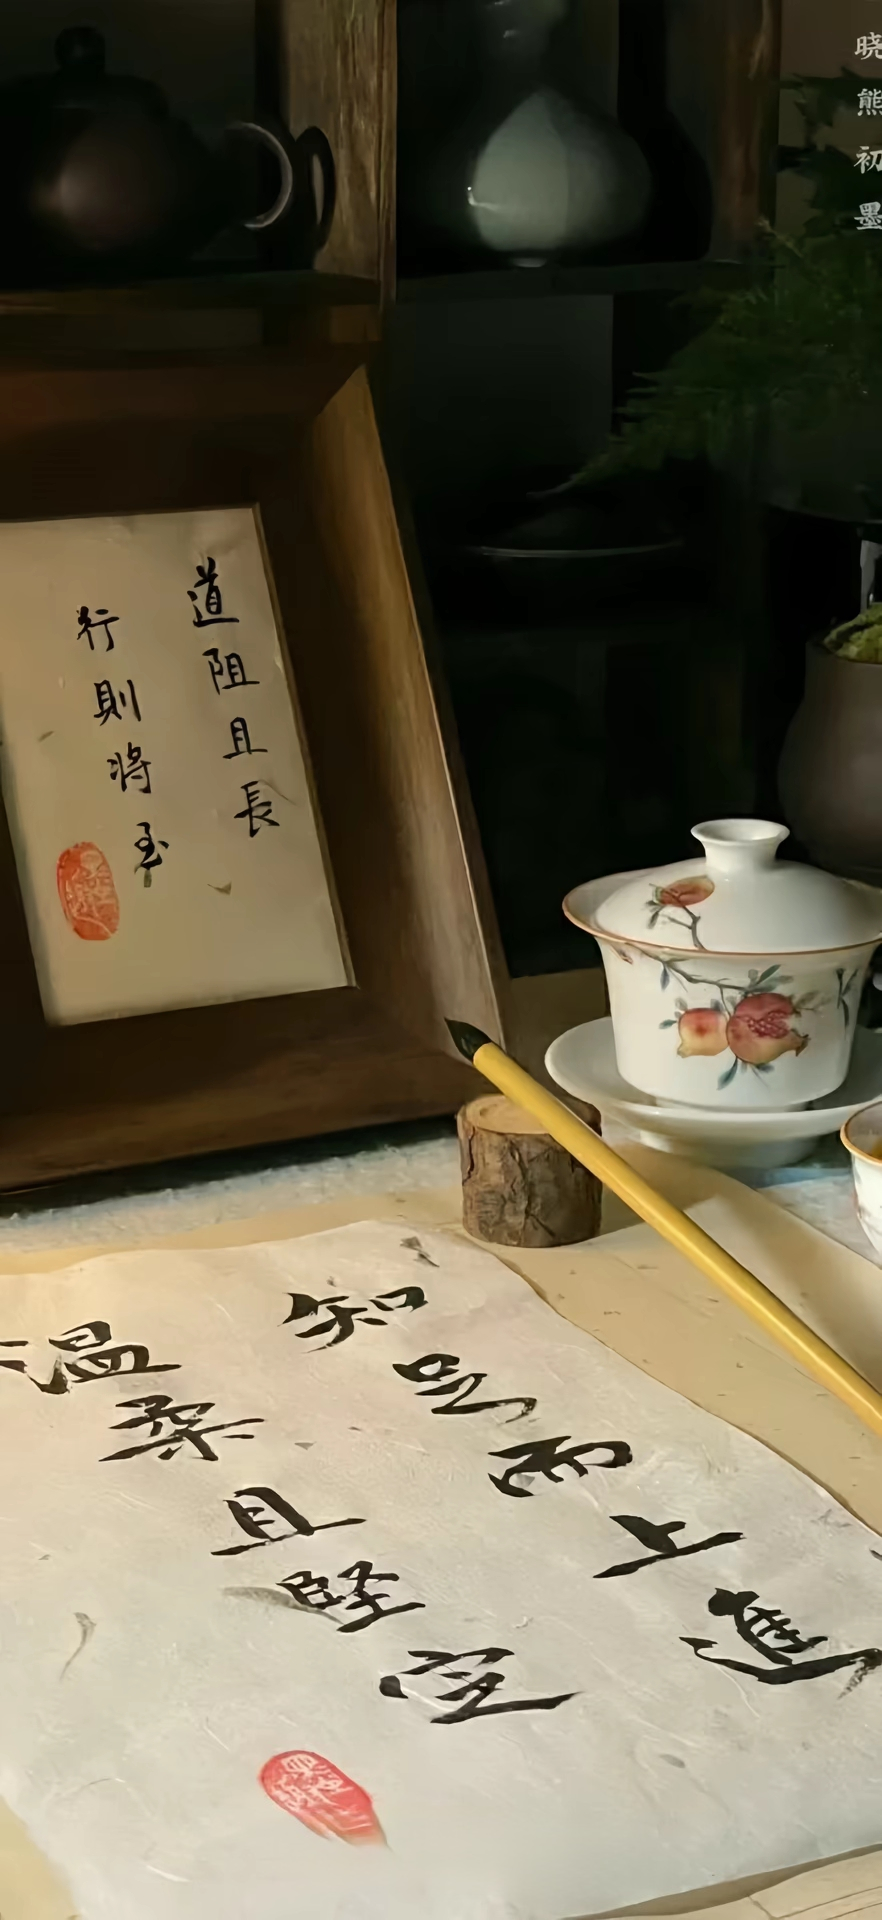 晓熊初墨
道阻且長
行則將至
知足而上進
温柔且堅定